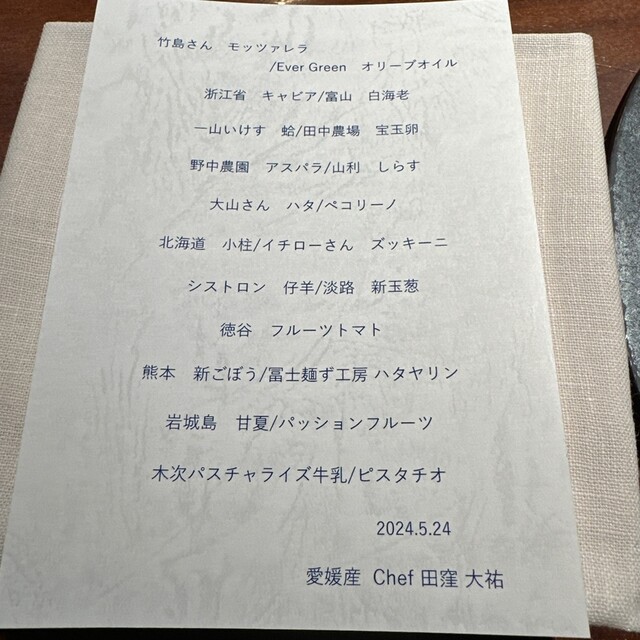 竹島さん　モッツァレラ
/Ever Green　オリーブオイル
浙江省　キャビア/富山　白海老
一山いけす　蛤/田中農場　宝玉卵
野中農園　アスパラ/山利　しらす
大山さん　ハタ/ペコリーノ
北海道　小柱/イチローさん　ズッキーニ
シストロン　仔羊/淡路　新玉葱
徳谷　フルーツトマト
熊本　新ごぼう/冨士麺ず工房 ハタヤリン
岩城島　甘夏/パッションフルーツ
木次パスチャライズ牛乳/ピスタチオ
2024.5.24
愛媛産 Chef 田窪 大祐